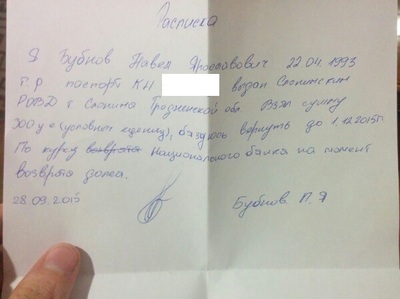 Расписка
Я Бубнов Павел Ярославович 22.04.1993
г.р. паспорт КН выдан Слонимским
РОВД г. Слонима Гродненской обл. Взял сумму
300 у.е (условных единиц), обязуюсь вернуть до 1.12.2015г
По курсу возврата Национального банка на момент
возврата долга.
28.09.2015
Бубнов П. Я